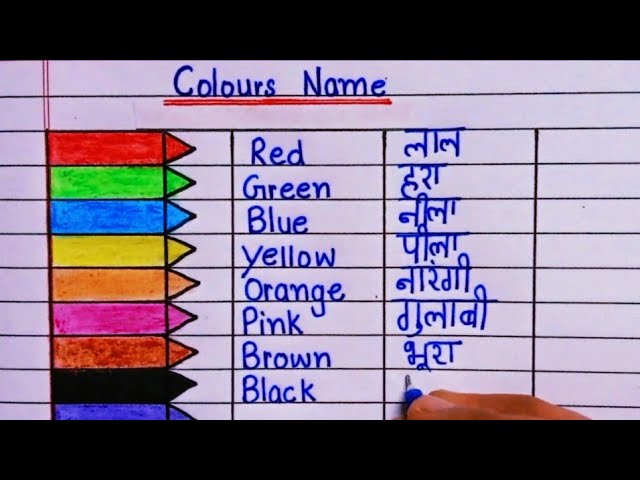 Colours Name
Red लाल
Green हरा
Blue नीला
Yellow पीला
Orange नारंगी
Pink गुलाबी
Brown भूरा
Black